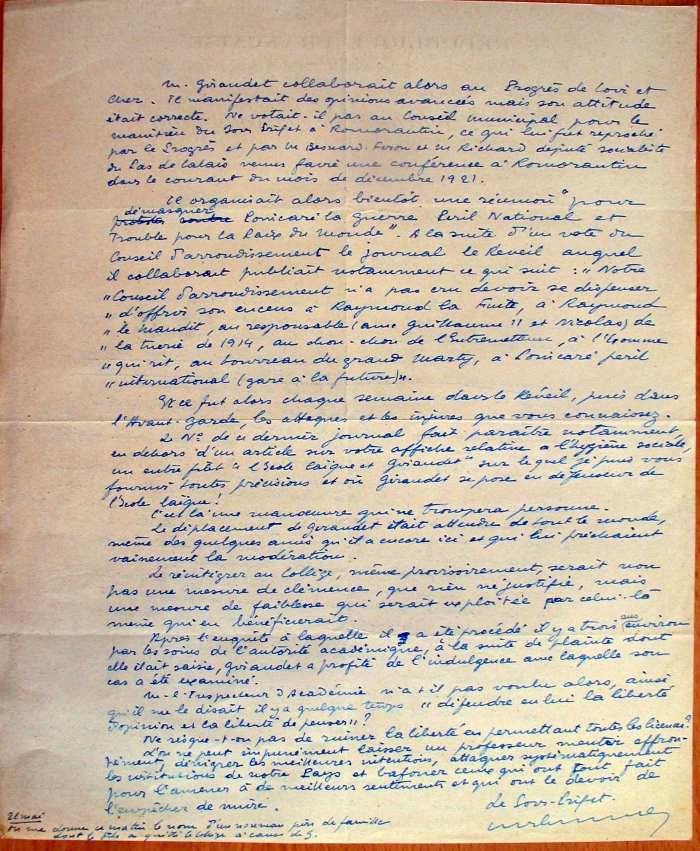 M. Giraudet collaborait alors au Progrès de Loir et
Cher. Il manifestait des opinions avancées mais son attitude
était correcte. Ne votait-il pas au Conseil Municipal pour le
maintien du Sous Préfet à Romorantin, ce qui lui fut reproché
par le Progrès et par M. Besnard-Feron et M. Richard député socialiste
du Pas de Calais venus faire une conférence à Romorantin
dans le courant du mois de décembre 1921.
Il organisait alors bientôt une réunion "pour
démasquer
protester contre Poincaré la guerre, Péril National et
Trouble pour la Paix du Monde". A la suite d'un vote du
Conseil d'arrondissement le journal le Réveil auquel
il collaborait publiait notamment ce qui suit : "Notre
"Conseil d'arrondissement n'a pas cru devoir se dispenser
"d'offrir son encens à Raymond la Fuite, à Raymond
"le Maudit, au responsable (avec Guillaume II et Nicolas) de
"la tuerie de 1914, au chou-chou de l'Entremetteur, à l'homme
"qui rit, au bourreau du grand Marty, à Poincaré péril
"international (gare à la future)".
Et ce fut alors chaque semaine dans le Réveil, puis dans
l'Avant-garde, les attaques et les injures que vous connaissez.
Le No de ce dernier journal fait paraître notamment,
en dehors d'un article sur votre affiche relative à l'hygiène sociale,
un entre filet "l'Ecole laïque et Giraudet" sur lequel je puis vous
fournir toutes précisions et où Giraudet se pose en défenseur de
l'Ecole laïque !
C'est là une manoeuvre qui ne trompera personne.
Le déplacement de Giraudet était attendu de tout le monde,
même des quelques amis qu'il a encore ici et qui lui prêchaient
vainement la modération.
Le réintégrer au Collège, même provisoirement, serait non
pas une mesure de clémence, que rien ne justifie, mais
une mesure de faiblesse qui serait exploitée par celui-là
même qui en bénéficierait.
Après l'enquête à laquelle il a été procédé il y a trois ans environ
par les soins de l'autorité académique, à la suite de plainte dont
elle était saisie, Giraudet a profité de l'indulgence avec laquelle son
cas a été examiné.
M. l'Inspecteur d'Académie n'a-t-il pas voulu alors, ainsi
qu'il me le disait il y a quelque temps "défendre en lui la liberté
d'opinion et la liberté de penser" ?
Ne risque-t-on pas de ruiner la liberté en permettant toutes les licences ?
L'on ne peut impunément laisser un professeur mentir effron-
tément, dénigrer les meilleures intentions, attaquer systématiquement
les institutions de notre Pays et bafouer ceux qui ont tout fait
pour l'amener à de meilleurs sentiments et qui ont le devoir de
l'empêcher de nuire.
Le Sous-Préfet.
22 mai
On me donne ce matin le nom d'un nouveau père de famille
dont le fils a quitté le collège à cause de G.